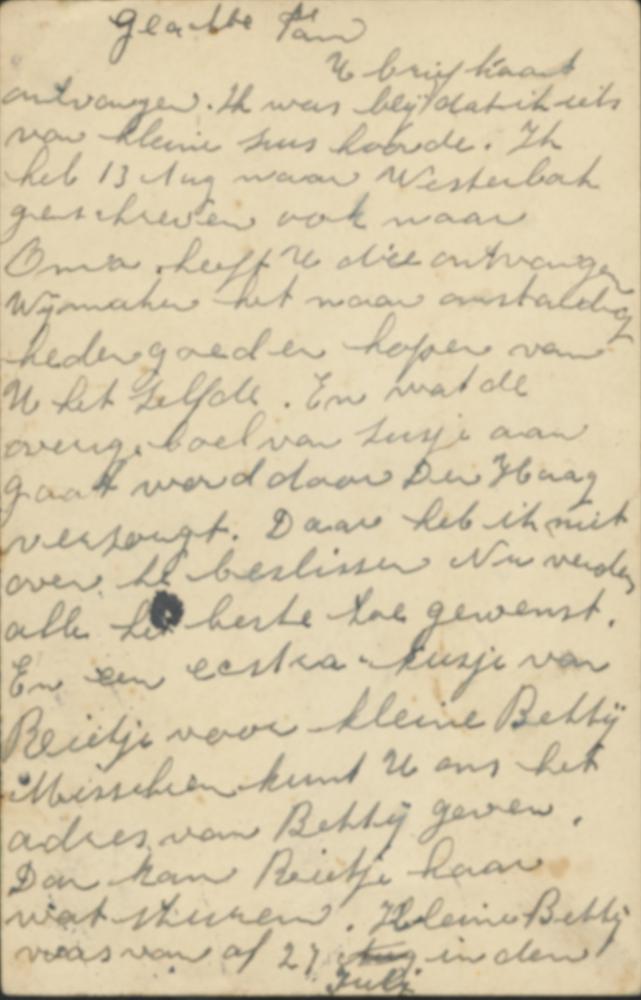 Geachte Fam
U briefkaart
ontvangen. Ik was blij dat ik iets
van kleine sus hoorde. Ik
heb 13 Aug naar Westerbok
geschreven ook naar
Oma. heeft U die ontvangen
Wij maken het naar omstandig
heden goed en hopen van
U het zelfde. En wat de
overige boel van susje aan
gaat word door Den Haag
verzorgt. Daar heb ik niet
over te beslissen Nu verder
alle het beste toe gewenst.
En een ecstra kusje van
Reietje voor kleine Bettÿ
Misschien kunt U ons het
adres van Bettÿ geven.
Dan kan Reietje haar
wat sturen. Kleine Bettÿ
was van af 27 Aug in den
Juli